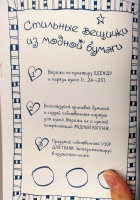 Стильные вещички
из модной бумаги
Вырежи по контуру ОДЕЖДУ
и наряди кукол (с. 24–28).
Используй красивые бумажки
и создай собственные наряды
для кукол. Вырежи их и сделай
потрясающий МОДНЫЙ КОЛЛАЖ.
Придумай собственный УЗОР
ДЛЯ ТКАНИ. Экспериментируй
в кружочках ниже.